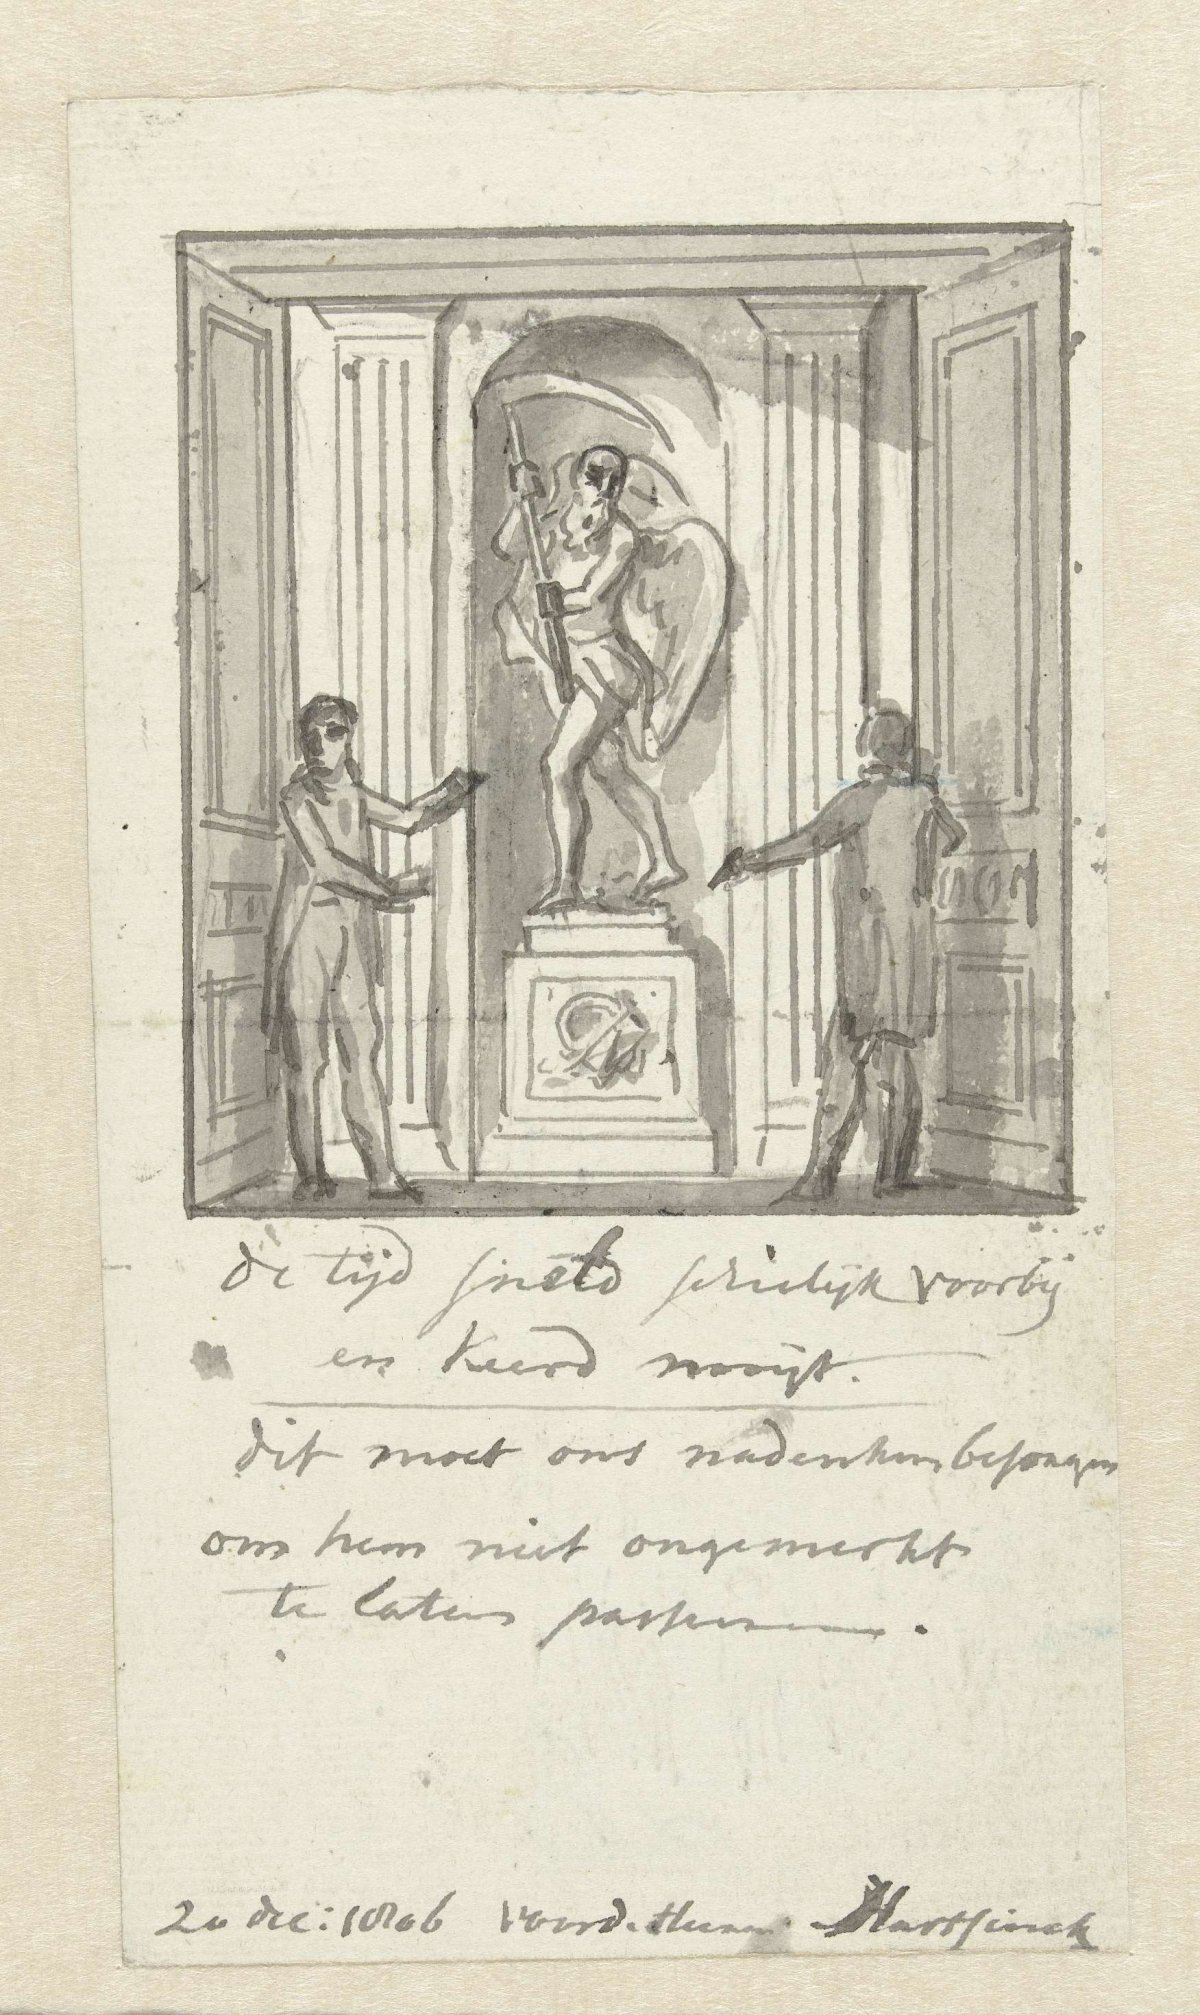 de tijd sneld schielijk voorbij
en keerd nooijt.
dit moet ons nadenken besorgen
om hem niet ongemerkt
te laten passeeren.
20 dec: 1806 voor d. Heeren Hartsinck